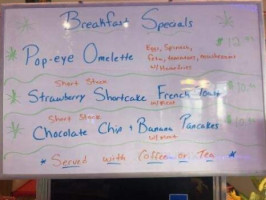 Breakfast Specials
Pop-eye Omelette
Eggs, Spinach,
Feta, tomatoes, mushrooms
w/ Homefries
Short Stack
Strawberry Shortcake French Toast
w/ Meat
Short Stack
Chocolate Chip + Banana Pancakes
w/ Meat
Served with Coffee or Tea